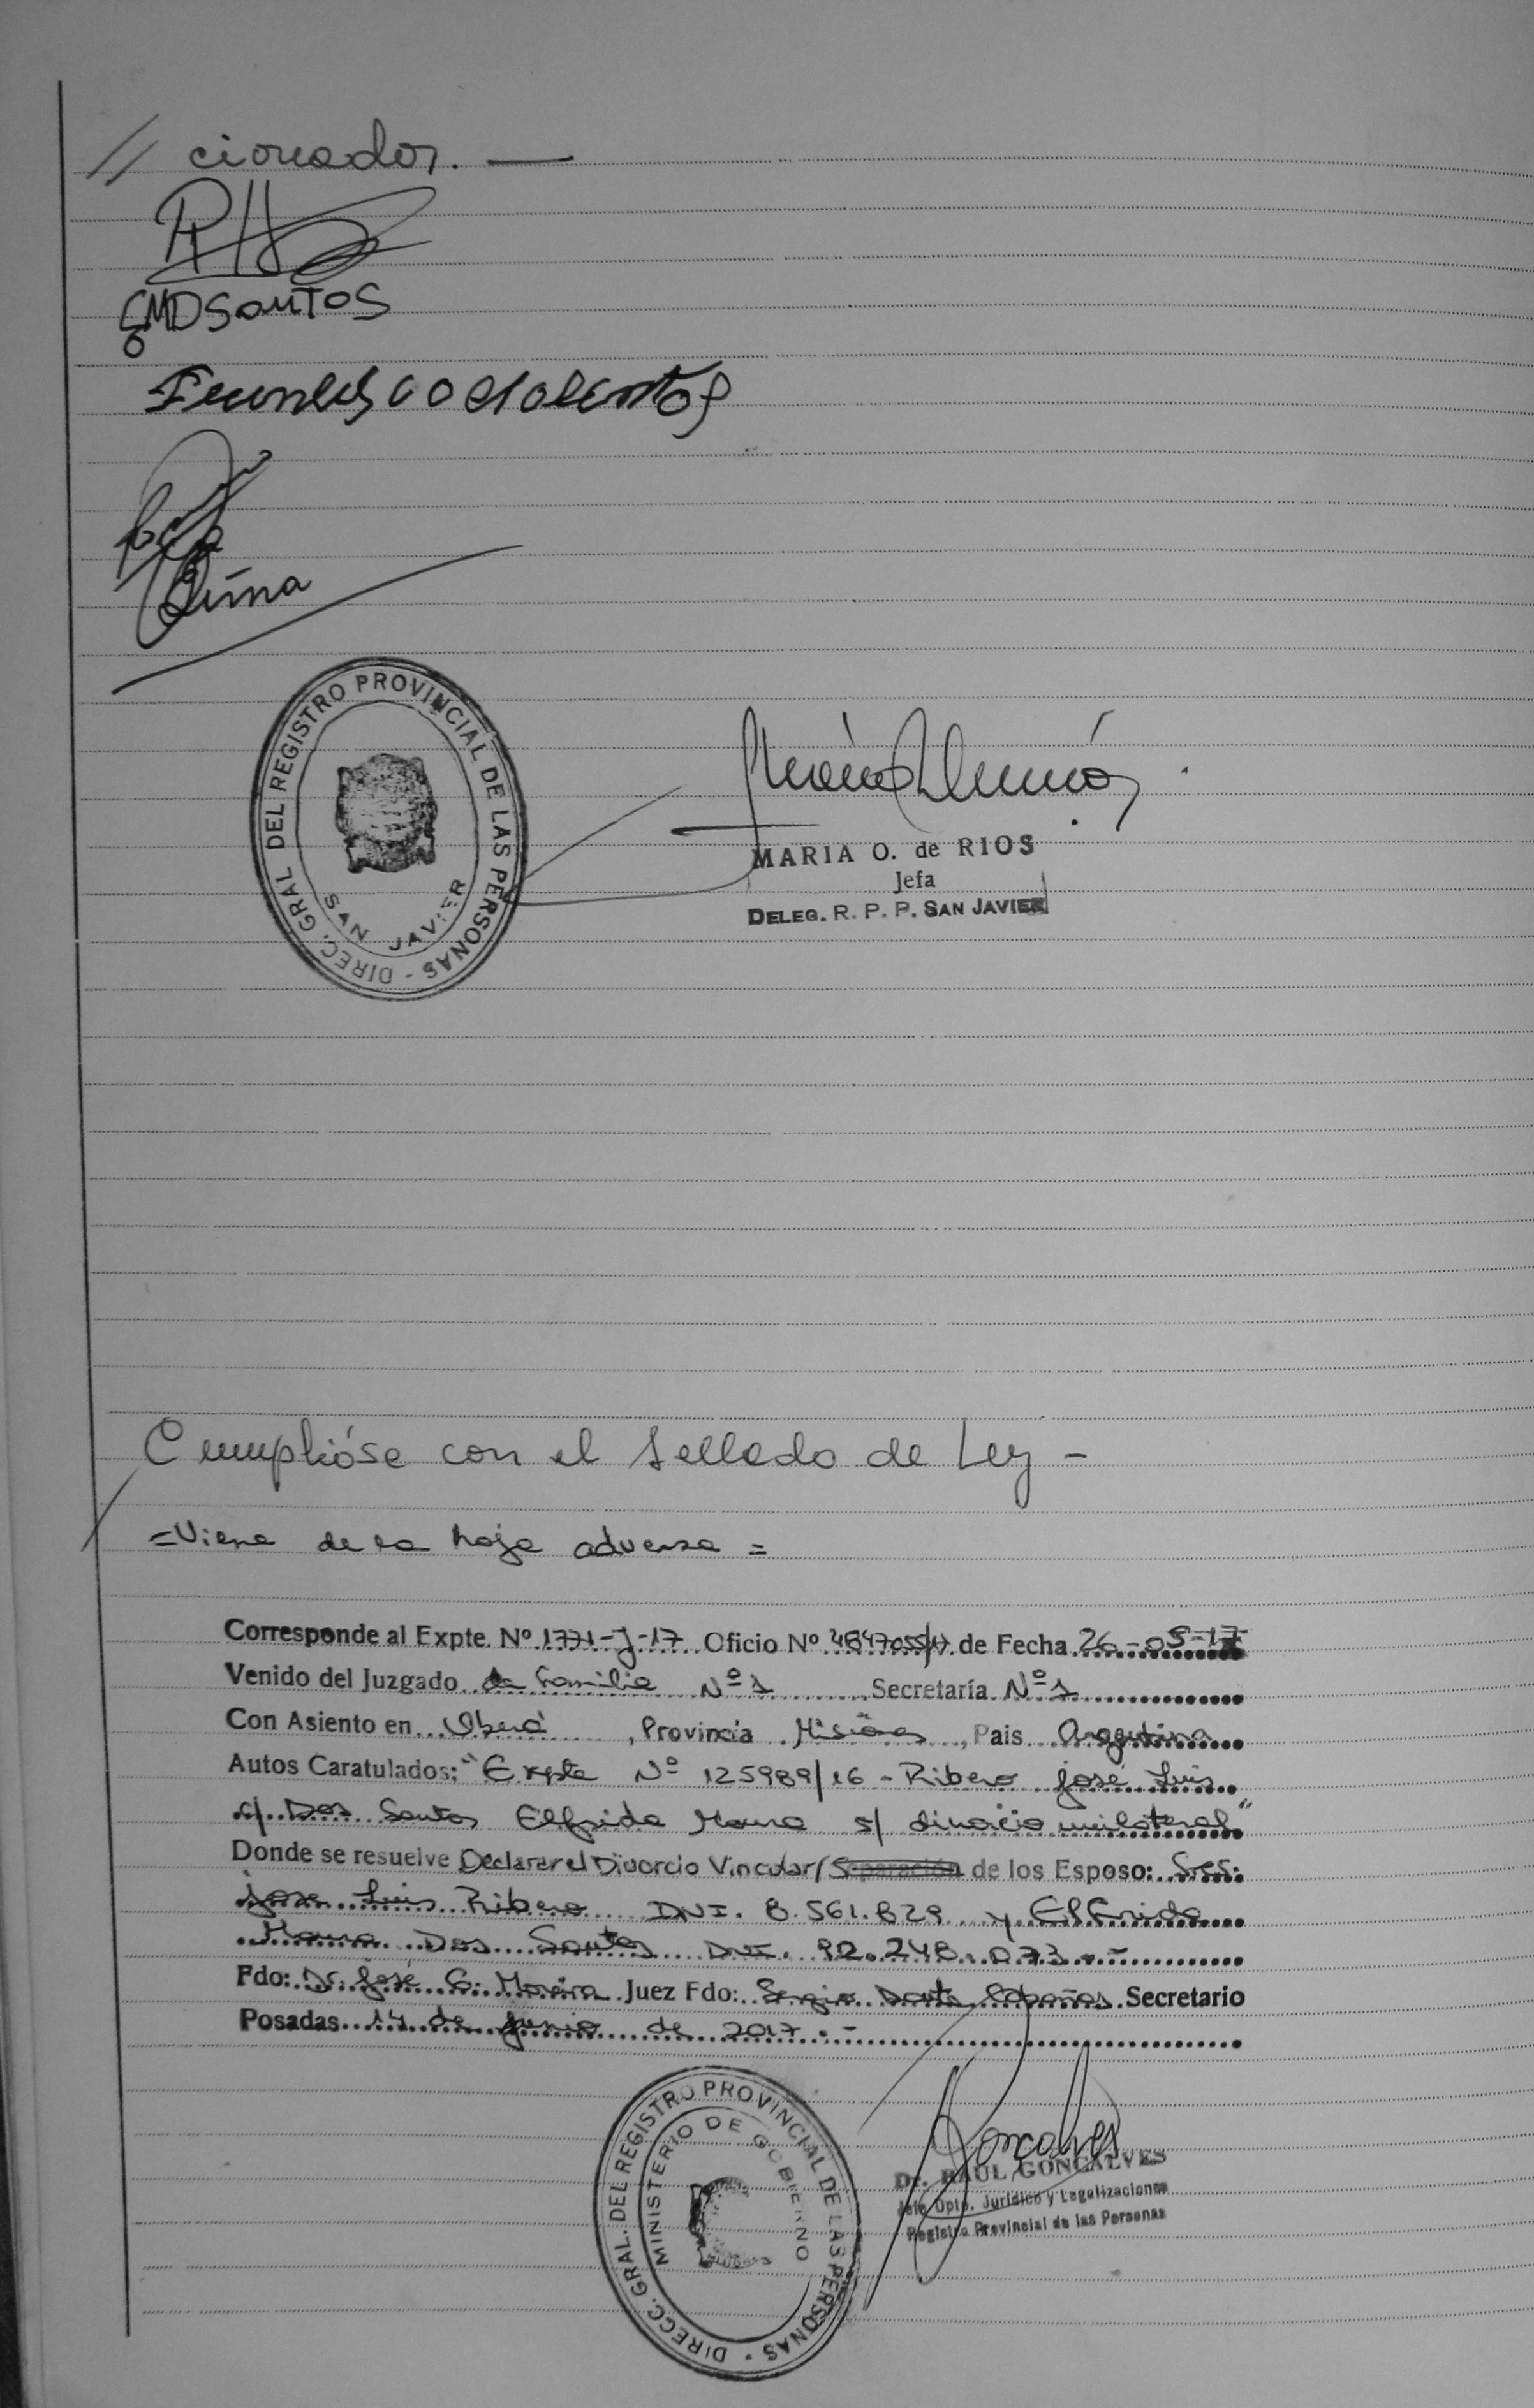 // cionados. —
EMDSantos
Francisco dos santos
Lima
DIREC. GRAL DEL REGISTRO PROVINCIAL DE LAS PERSONAS -
SAN JAVIER
MARIA O. de RIOS
Jefa
DELEG. R. P. P. SAN JAVIER
Cumplióse con el sellado de Ley -
=Viene de la hoja adversa =
Corresponde al Expte. Nº 1771-J-17 Oficio Nº 4847055/17 de Fecha 26-05-17
Venido del Juzgado de Familia Nº 1 Secretaría Nº 1
Con Asiento en Oberá, Provincia Misiones, Pais Argentina
Autos Caratulados: "Expte Nº 125989/16 - Ribero José Luis
c/ Dos Santos Elfrida Maura s/ divorcio unilateral"
Donde se resuelve Declarar el Divorcio Vincular/Separación de los Esposo: Sres.
José Luis Ribero DNI. 8.561.829 y Elfrida
Maura Dos Santos DNI. 92.248.073.-
Fdo: Dr. José G. Moreira Juez Fdo: Sergio Dante Cabañas Secretario
Posadas 14 de Junio de 2017.-
DIRECC. GRAL. DEL REGISTRO PROVINCIAL DE LAS PERSONAS -
MINISTERIO DE GOBIERNO
Goncalves
Dr. RAUL GONCALVES
Jefe Dpto. Jurídico y Legalizaciones
Registro Provincial de las Personas